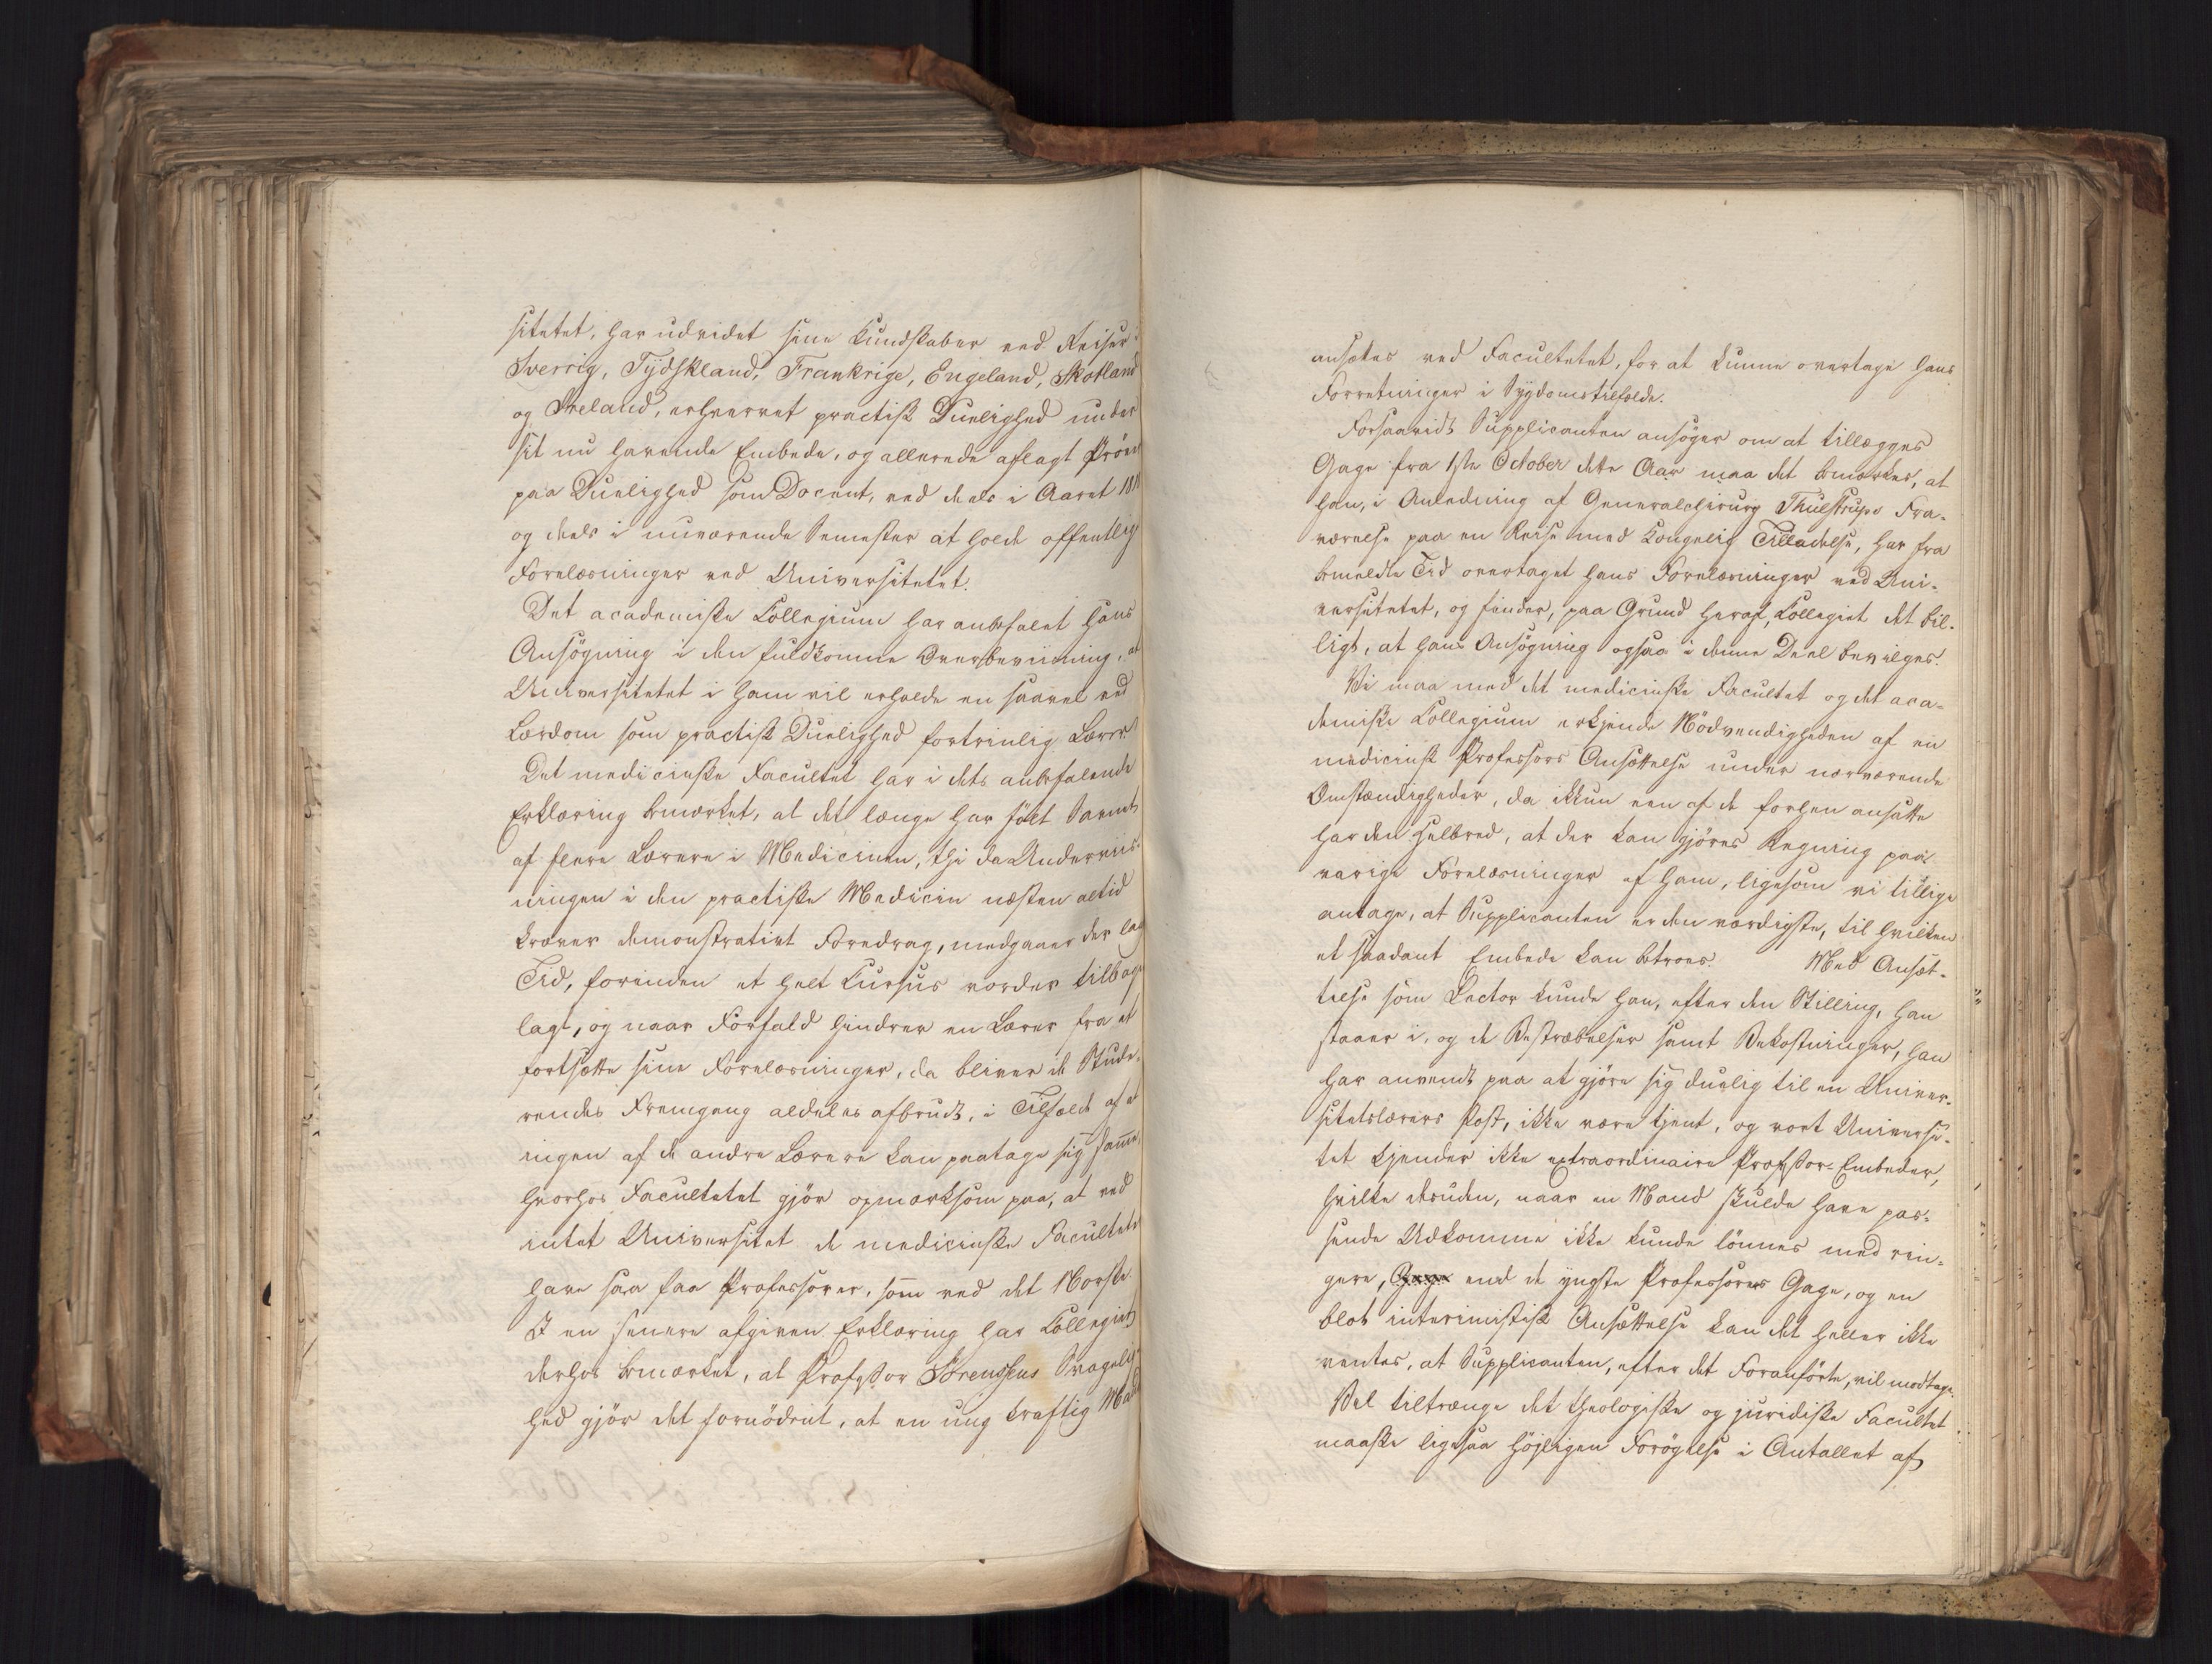 sitetet, har udvidet sine Kundskaber ved Reiser i
Sverrig, Tydskland, Frankrige, Engeland, Skotland
og Ireland, erhvervet practisk Duelighed under
sit nu havende Embede, og allerede aflagt Pröver
paa Duelighed som Docent, ved deels i Aaret 181
og deels i nuværende Semester at holde offentlig
Forelæsninger ved Universitetet.
Det academiske Collegium har anbefalet Hans
Ansögning i den fuldkomne Overbeviisning, at
Universitetet i ham vil erholde en saavel ved
Lærdom som practisk Duelighed fortrinlig Lærer.
Det medicinske Facultet har i dets anbefalende
Erklæring bemærket, at det længe har fölt Savnet
af flere Lærere i Medicinen, thi da Underviis-
ningen i den practiske Medicin næsten altid
kræver demonstrativt Foredrag, medgaaer der lang
Tid, forinden et heelt Cursus vorder tilbage
lagt, og naar Forfald hindrer en Lærer fra at
fortsætte sine Forelæsninger, da bliver de Stude-
rendes Fremgang aldeles afbrudt, i Tilfælde af at
ingen af de andre Lærere kan paatage sig samme,
hvorhos Facultetet gjör opmærksom paa, at ved
intet Universitet de medicinske Faculteter
have saa faa Professorer, som ved det Norske
I en senere afgiven Erklæring har Collegiet
derhos bemærket, at Professor Skjendsens Svagelig-
hed gjör det fornödent, at en ung kraftig Mand
ansættes ved Facultetet, for at kunne overtage hans
Forretninger i Sygdomstilfælde.
Forsaavidt Supplicanten ansöger om at tillægges
Gage fra 1ste October dette Aar maa det bemærkes, at
han, i Anledning af Generalchirurg Thulstrups Fra-
værelse paa en Reise med Kongelig Tilladelse, har fra
bemeldte Tid overtaget hans Forelæsninger ved Uni-
versitetet, og finder, paa Grund heraf, Collegiet det bil-
ligt, at hans Ansögning ogsaa i denne Deel bevilges.
Vi maa med det medicinske Facultet og det aca-
demiske Collegium erkjende Nödvendigheden af en
medicinsk Professors Ansættelse under nærværende
Omstændigheder, da ikkun een af de forhen ansatte
har den Helbred, at der kan gjöres Regning paa
varige Forelæsninger af ham, ligesom vi tillige
antage, at Supplicanten er den værdigste, til hvilken
et saadant Embede kan betroes. Med Ansæt-
telse som Lector kunde han, efter den Stilling, han
staaer i, og de Bestræbelser samt Bekostninger, han
har anvendt paa at gjöre sig duelig til en Univer-
sitetslærers Post, ikke være tjent, og vort Universi-
tet kjender ikke extraordinaire Professor-Embeder,
hvilke desuden, naar en Mand skulde have pas-
sende Udkomme ikke kunde lönnes med rin-
gere, Gage end de yngste Professorers Gage, og en
blot interimistisk Ansættelse kan det heller ikke
ventes, at Supplicanten, efter det Foranförte, vil modtage.
Vel tiltrænge det theologiske og juridiske Facultet
maaske ligesaa höjligen Forögelse i Antallet af